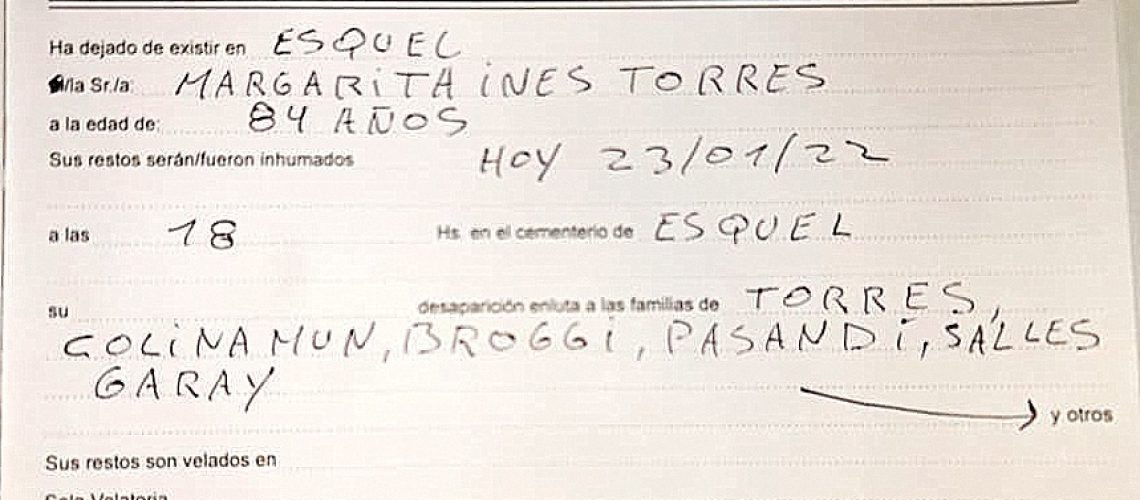 Ha dejado de existir en ESQUEL
/la Sr./a: MARGARITA INES TORRES
a la edad de: 84 AÑOS
Sus restos serán/fueron inhumados HOY 23/01/22
a las 18 Hs. en el cementerio de ESQUEL
su desaparición enluta a las familias de TORRES,
COLINAMUN, BROGGI, PASANDI, SALLES
GARAY
y otros
Sus restos son velados en
Sala Velatoria